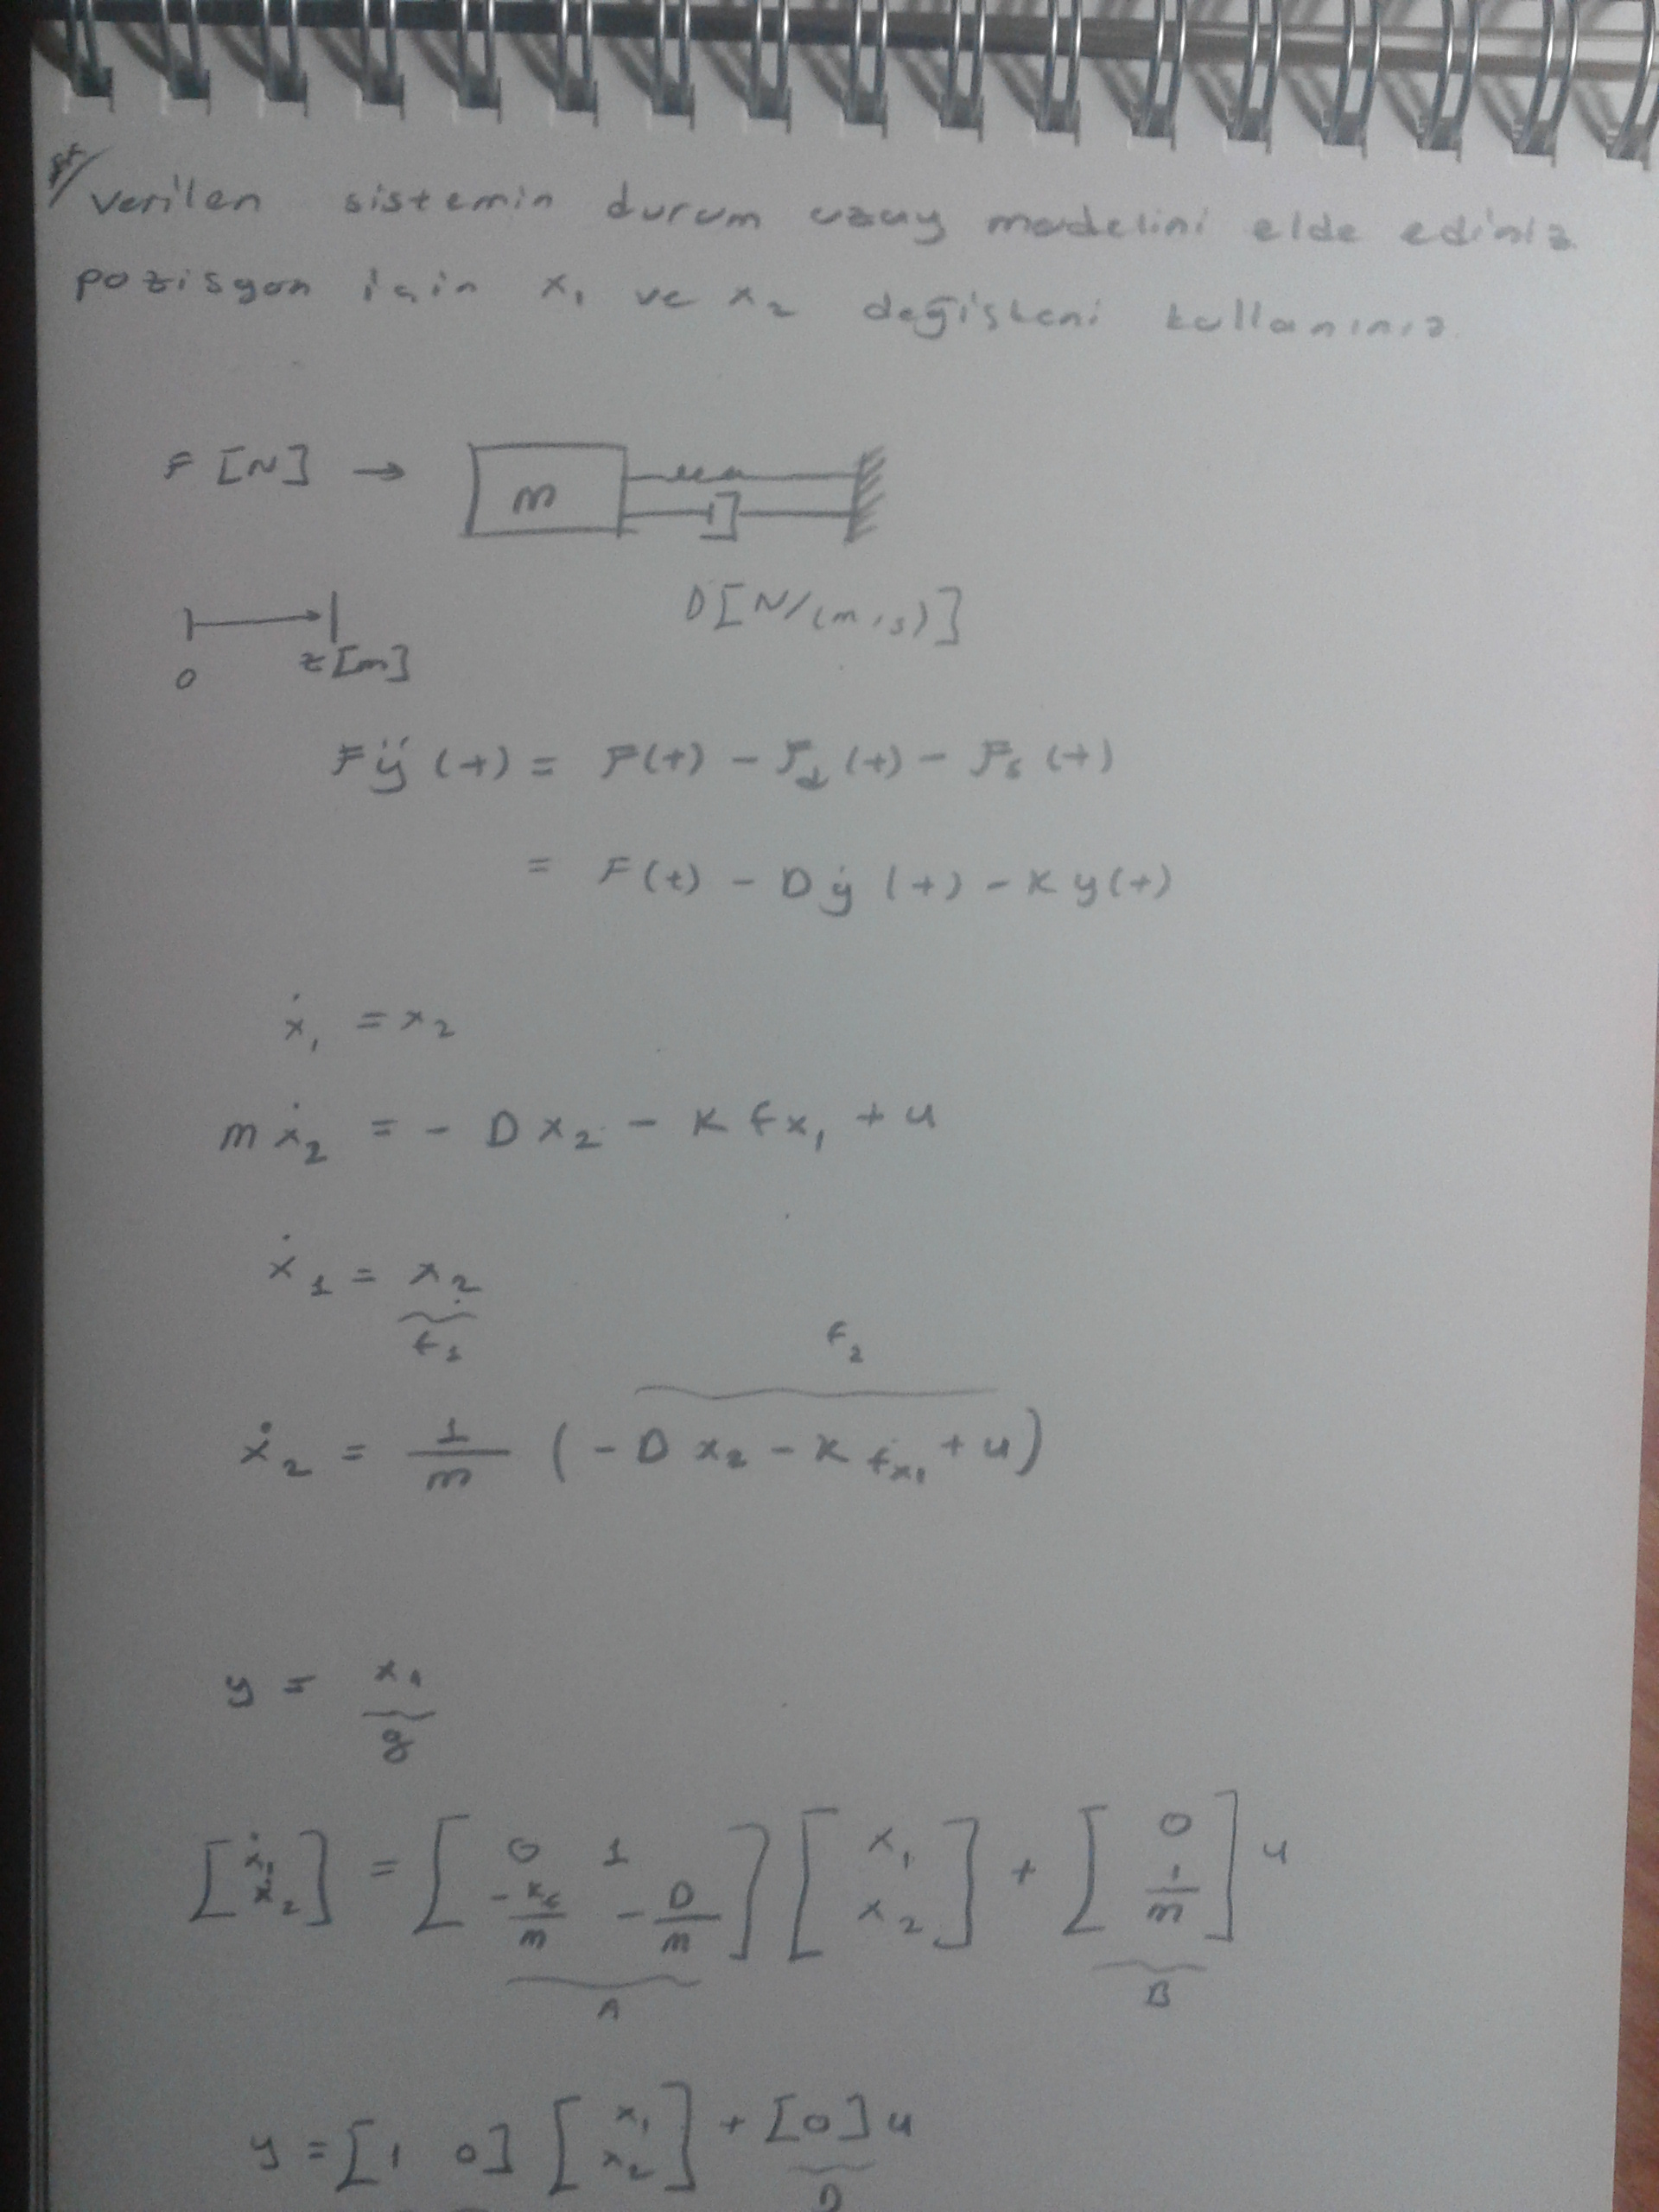 verilen sistemin durum uzay modelini elde ediniz
pozisyon için x₁ ve x₂ değişkeni kullanınız.
F [N] →
m
D[N/(m/s)]
0 z[m]
Fÿ(t) = F(t) - F_d(t) - F_s(t)
= F(t) - Dẏ(t) - Ky(t)
ẋ₁ = x₂
mẋ₂ = - Dx₂ - K f x₁ + u
ẋ₁ = x₂
f₁
f₂
ẋ₂ = 1/m (-D x₂ - K f x₁ + u)
y = x₁
g
[ẋ₁ ẋ₂] = [0 1 -K_f/m -D/m] [x₁ x₂] + [0 1/m] u
A B
y = [1 0] [x₁ x₂] + [0] u
D